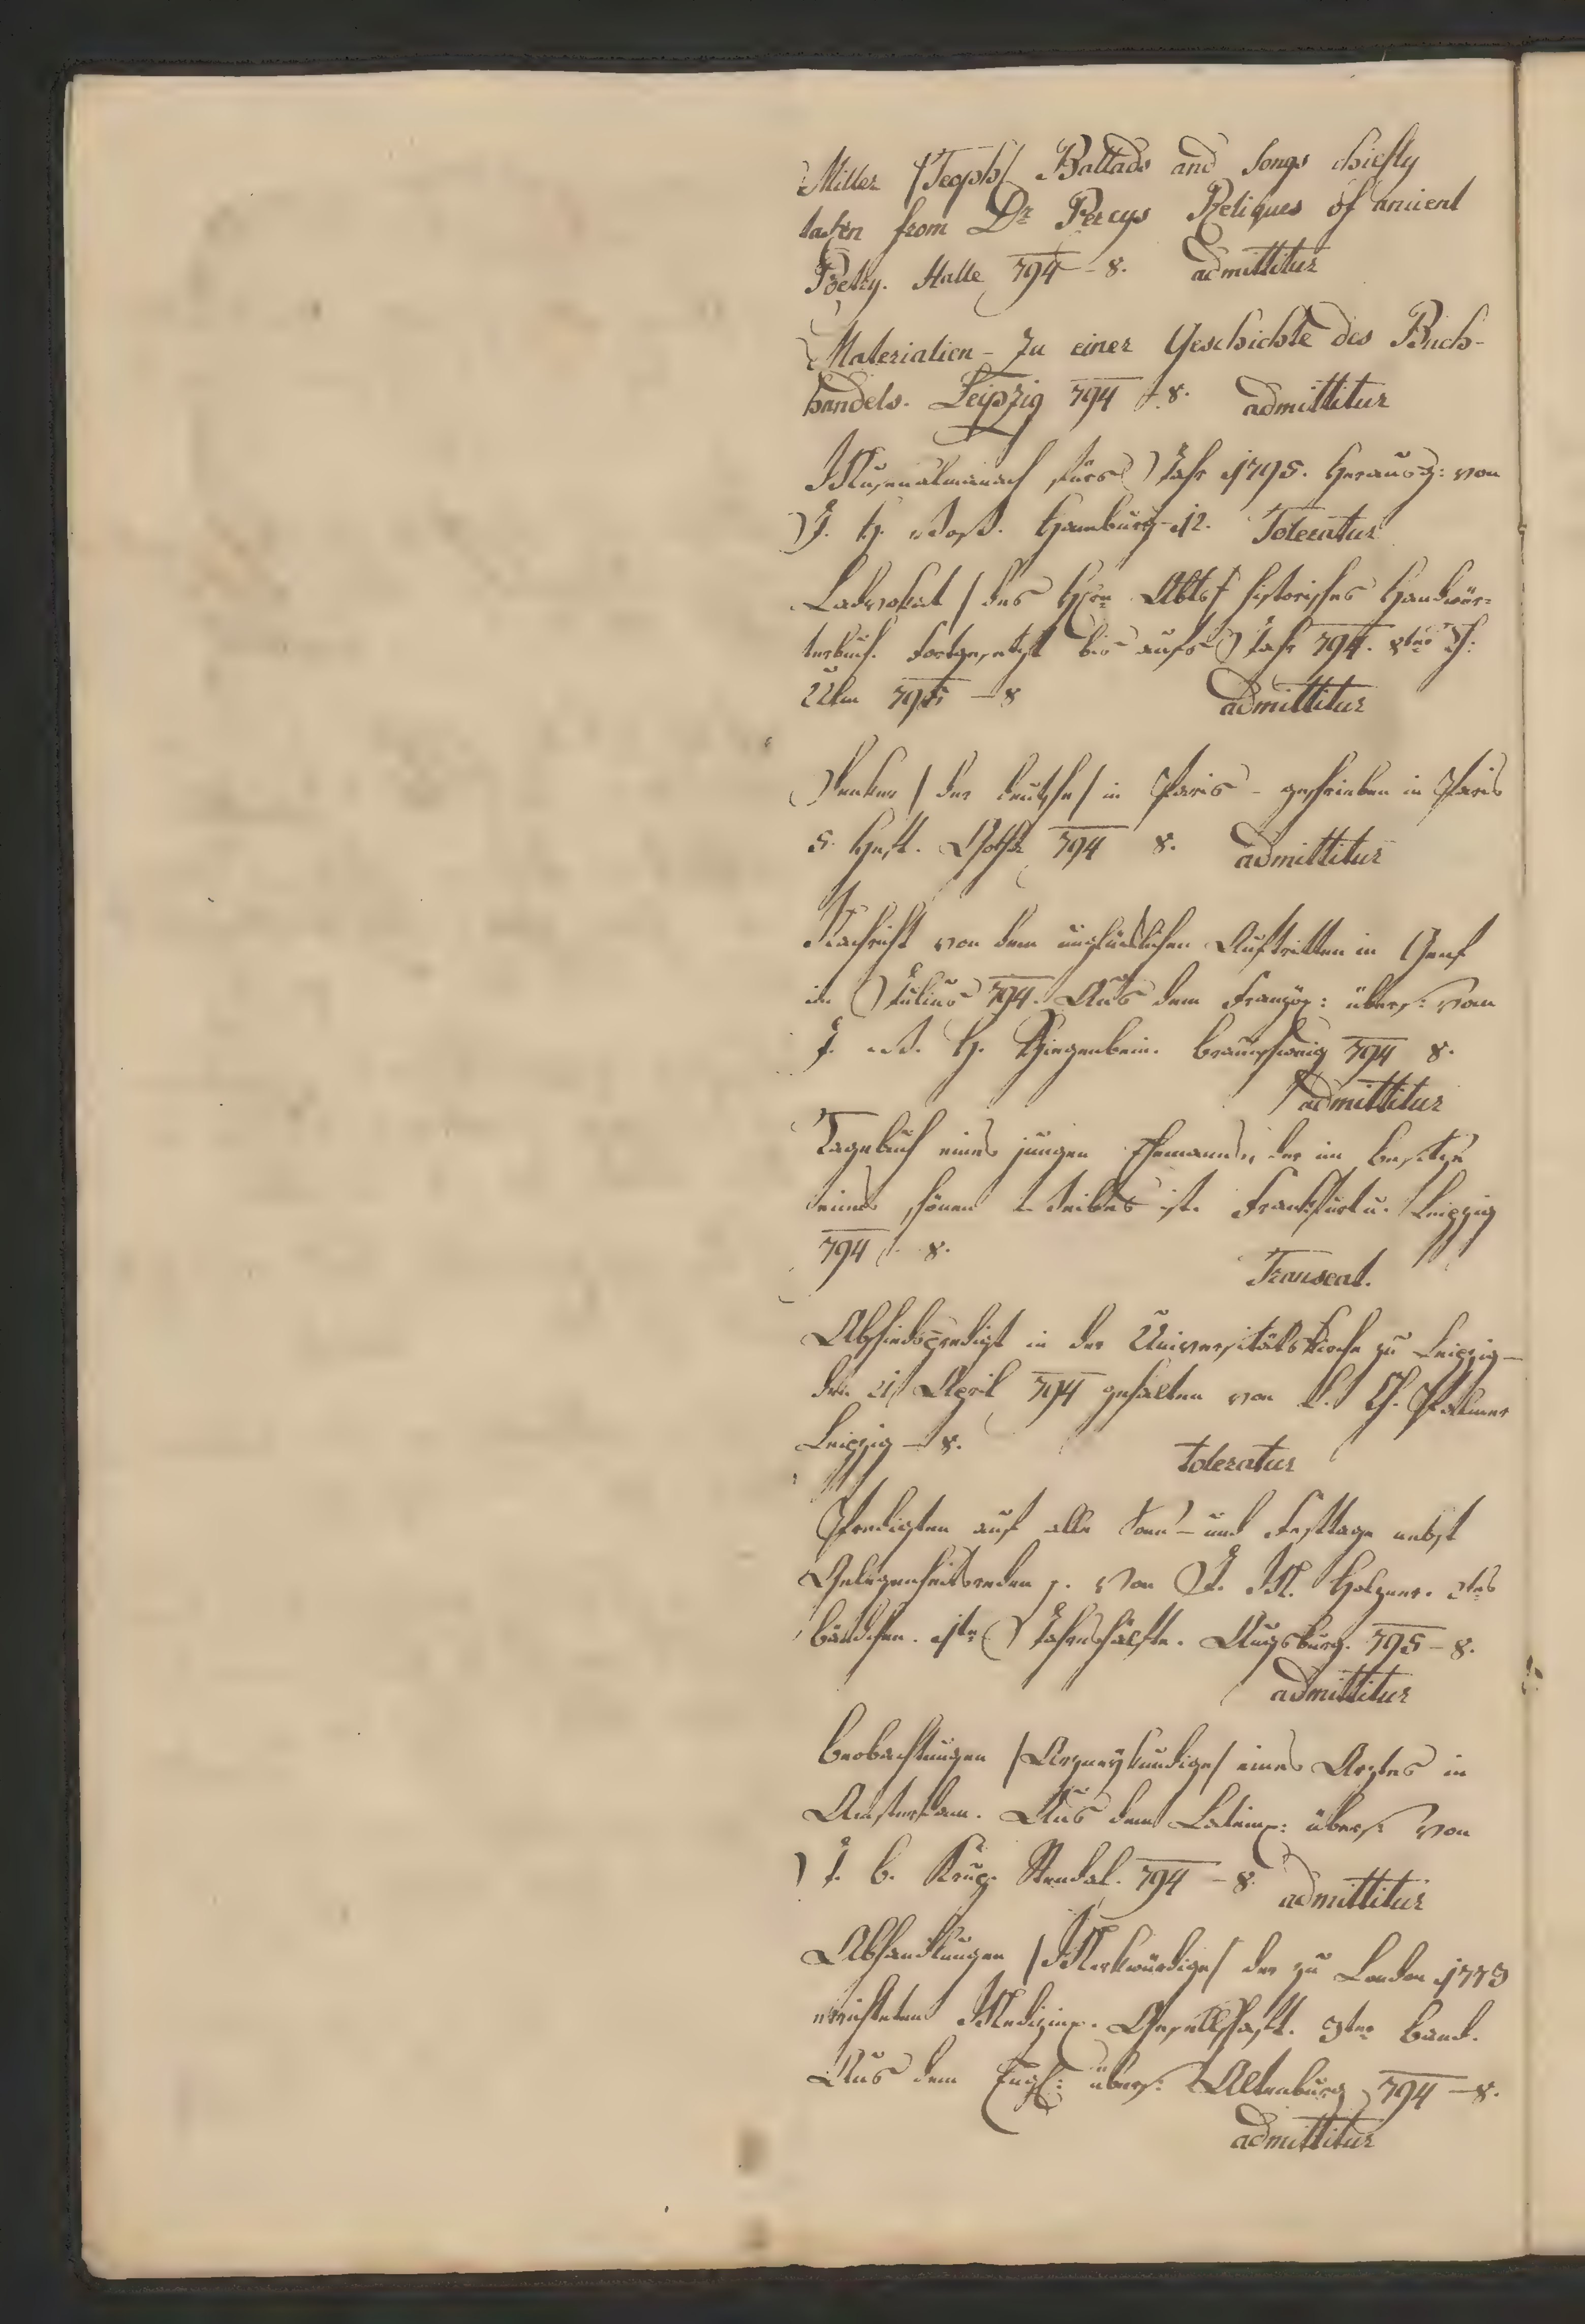 Miller /Teoph/ Ballads and Songs chiefly
taken from Dr Percys Reliques of ancient
Poetry. Halle 794 – 8. admittitur
Materialien – zu einer Geschichte des Buch-
handels. Leipzig 794 – 8. admittitur
Musenalmanach fürs Jahr 1795. Herausg: von
J. H. Voß. Hamburg – 12. Toleratur
Ladvokat /des Hrn Abts/ historisches Handwör-
terbuch. Fortgesetzt bis aufs Jahr 794. 8ter Th:
Ulm 795 – 8 admittitur
Henker /der deutsche/ in Paris – geschrieben in Paris
5. Heft. Gotha 794 8. admittitur
Nachricht von dem unglücklichen Auftritten in Genf
im Julius 794. Aus dem Französ: übers: vom
J. W. H. Ziegenbein. Braunschweig 794 8.
admittitur
Tagebuch eines jungen Ehemanns, der im Besitze
eines schönen Weibes ist. Frankfurt u. Leipzig
794 – 8.
Transeat.
Abschiedspredigt in der Universitätskirche zu Leipzig –
den 21 April 794 gehalten von K. Ch. Palmer
Leipzig – 8.
toleratur
Predigten auf alle Sonn- und Festtage nebst
Gelegenheitsreden p. von J. M. Holzner. 2tes
Bändchen. 1te Jahrshälfte. Augsburg. 795 – 8.
admittitur
Beobachtungen /Arzneykundige/ eines Arztes in
Amsterdam. Aus dem Latein: übers: von
J. C. Krug. Stendal. 794 – 8. admittitur
Abhandlungen /Merkwürdige/ der zu London 1773
errichteten Medizin. Gesellschaft. 3ter Band.
Aus dem Engl: übers: Altenburg 794 – 8.
admittitur